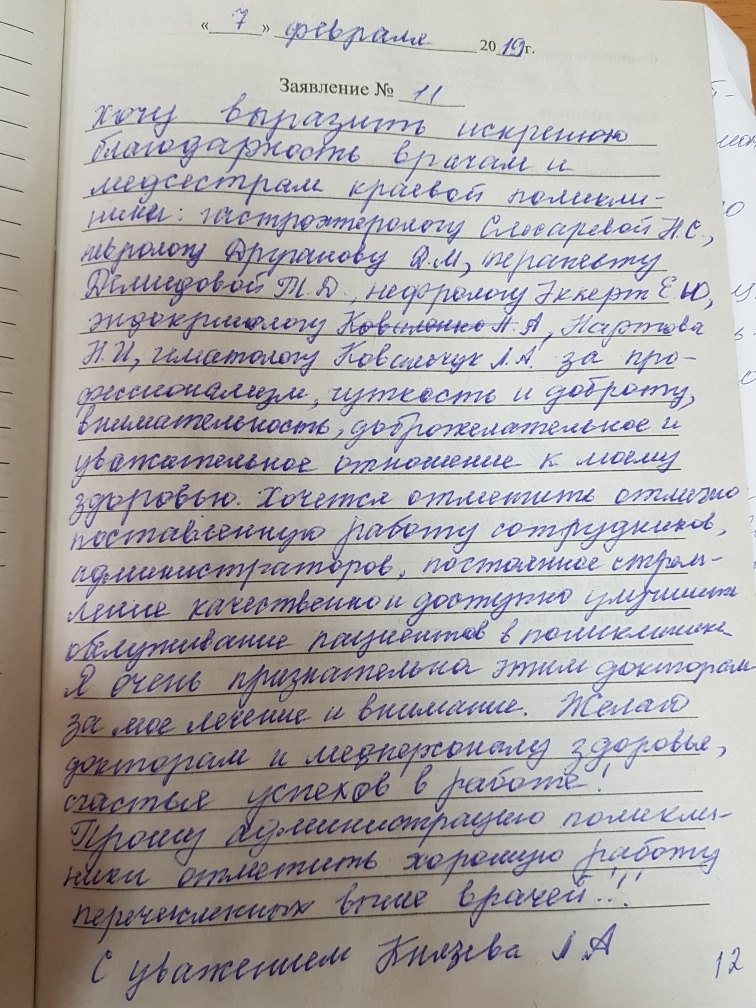 « 7 » февраля 2019г.
Заявление № 11
хочу выразить искреннюю
благодарность врачам и
медсестрам краевой поликли-
ники: гастроэтерологу Слесаревой Н.С.,
неврологу Друганову Д.М, терапевту
Демидовой Т.Д., нефрологу Эккерт Е.Ю,
эндокринологу Коваленко А.А, Нартова
Н.И, гематологу Ковальчук Л.А. за про-
фессионализм, чуткость и доброту,
внимательность, доброжелательное и
уважательное отношение к моему
здоровью. Хочется отметить отлично
поставленную работу сотрудников,
администраторов, постоянное стрем-
ление качественно и доступно улучшить
обслуживание пациентов в поликлинике
Я очень признательна этим докторам
за мое лечение и внимание. Желаю
докторам и медперсоналу здоровья,
счастья успехов в работе!
Прошу администрацию поликли-
ники отметить хорошую работу
перечисленных выше врачей!!!
С уважением Князева Л А
12